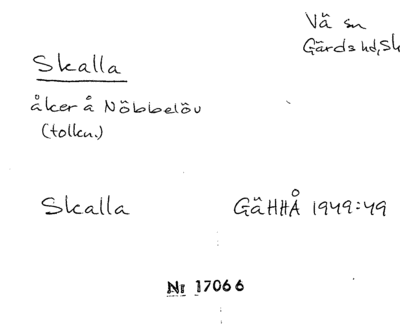 Vä sn
Gärds hd, Sk
Skalla
åker å Nöbbelöv
(tolkn.)
Skalla GäHHÅ 1949:49
Nr 17066